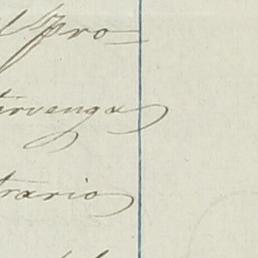 l Pro=
irvenga
trario